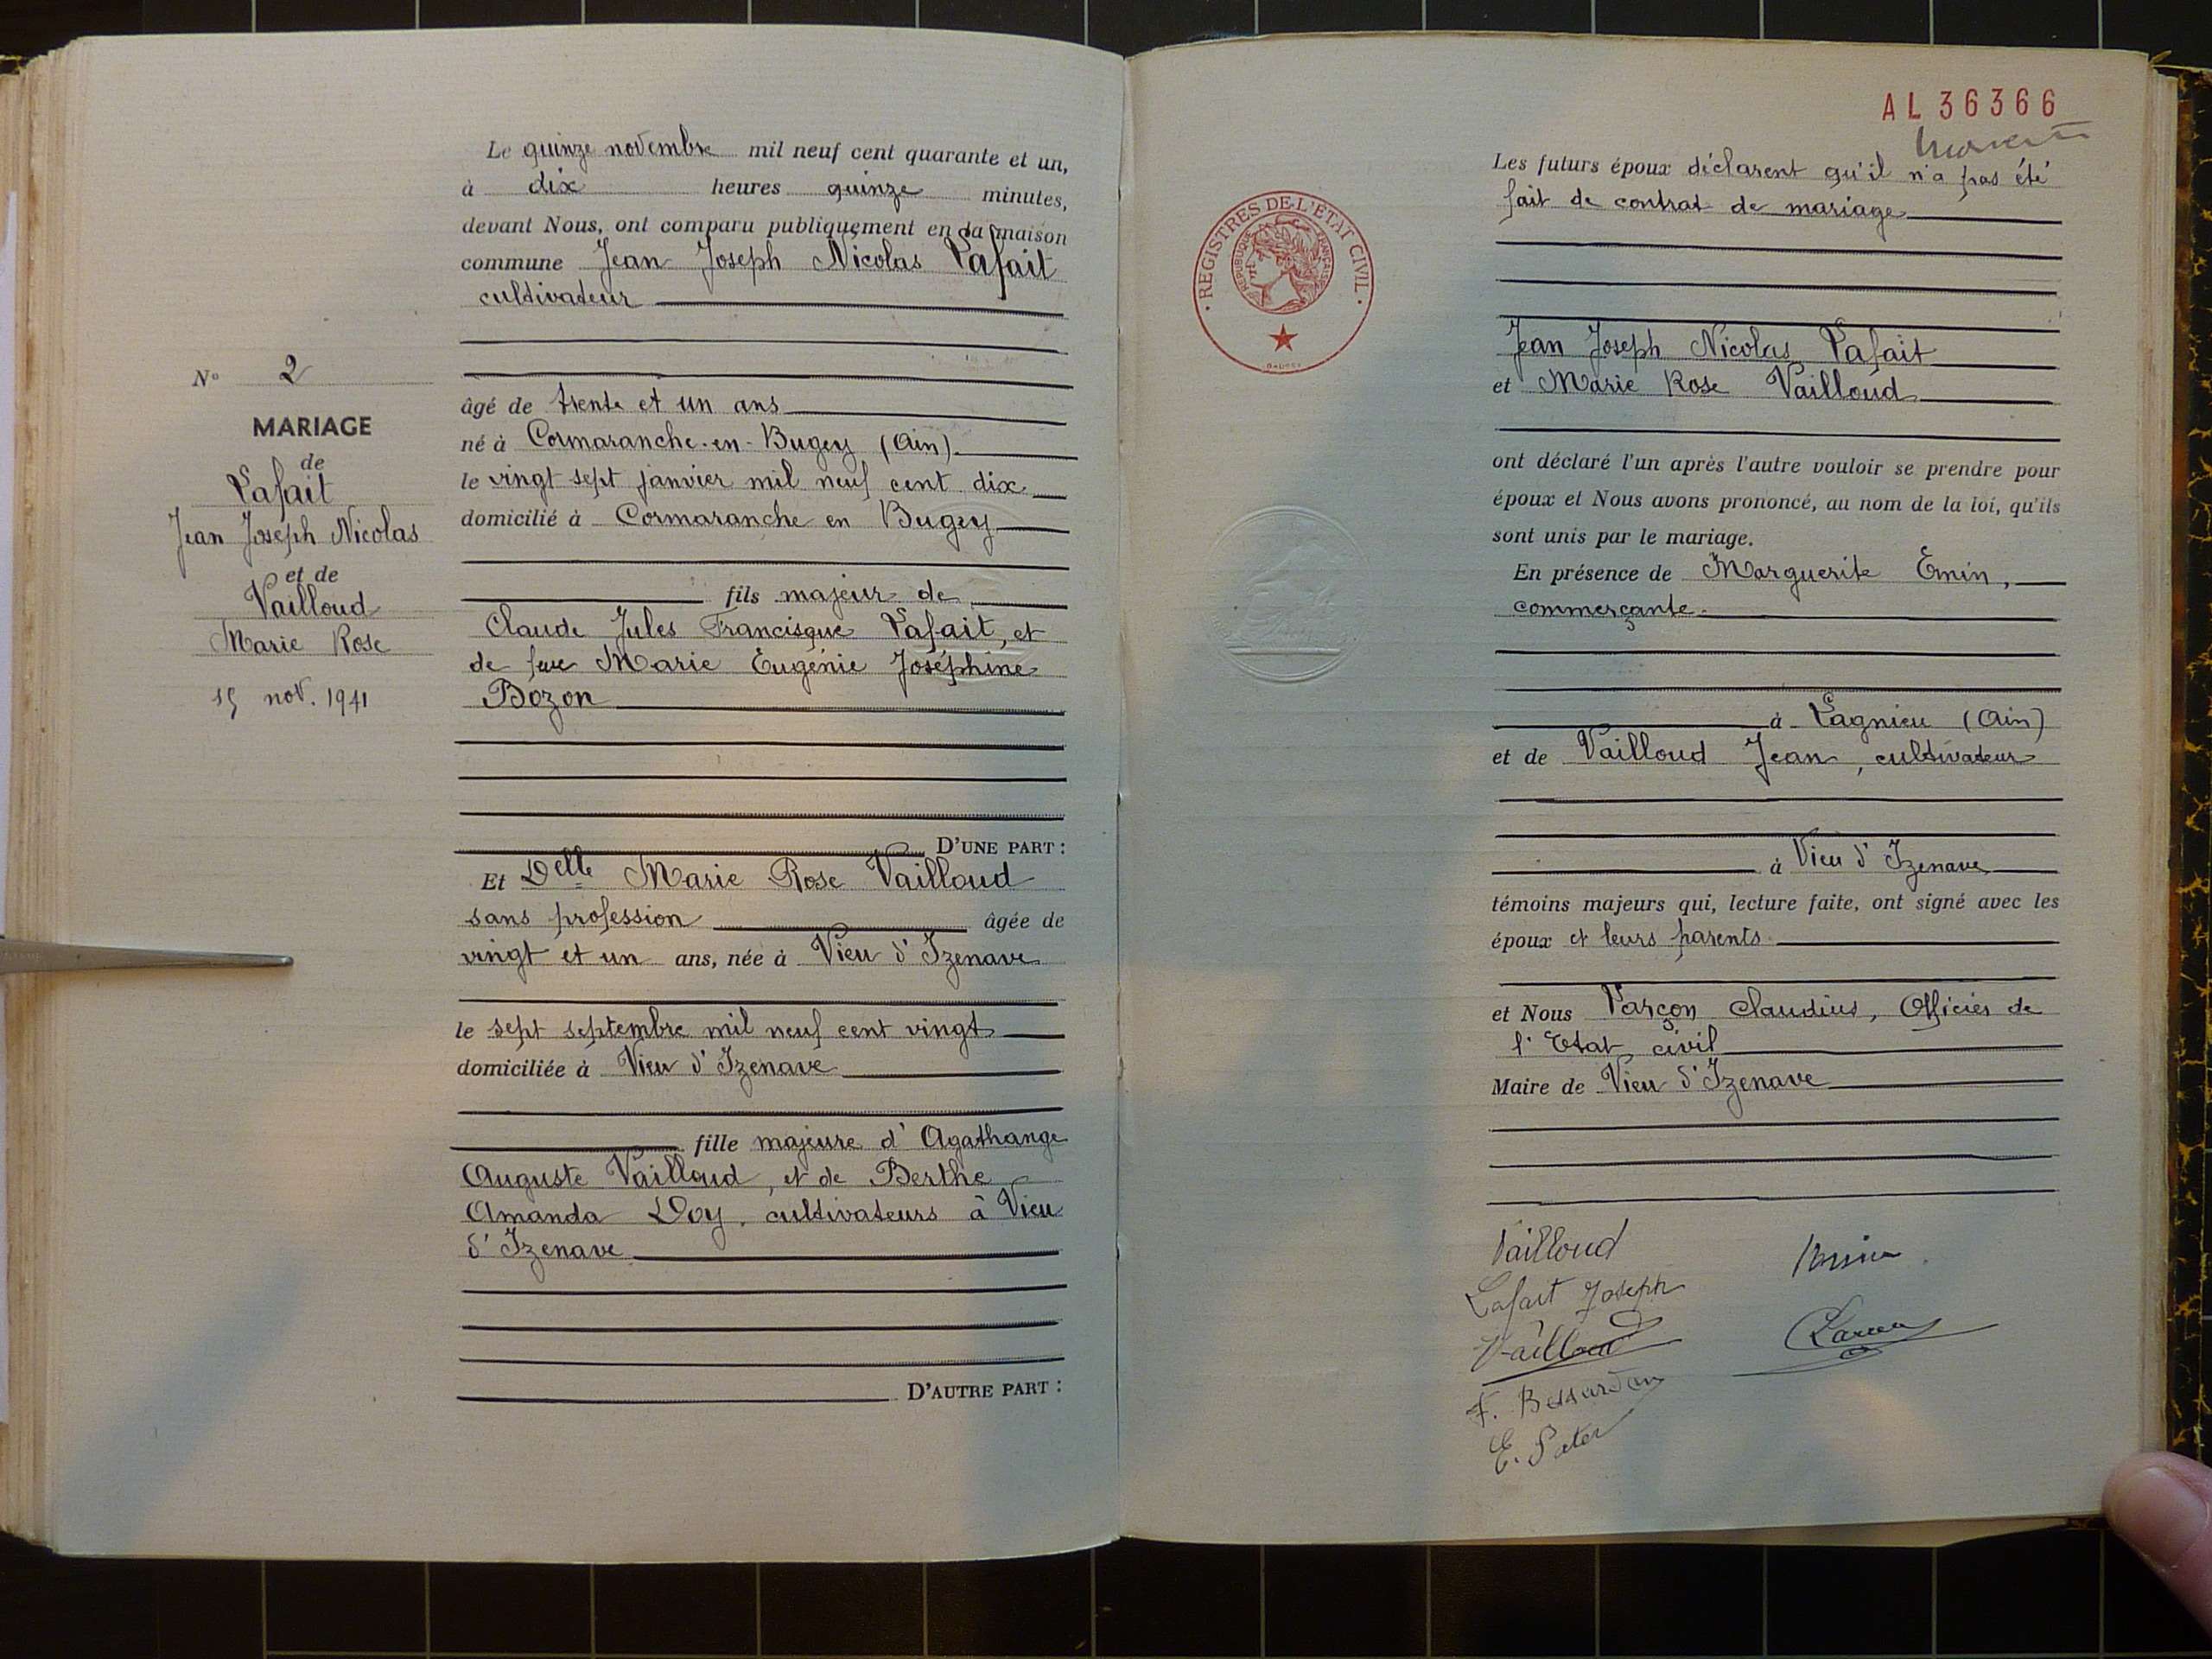 Le quinze novembre mil neuf cent quarante et un,
à dix heures quinze minutes,
devant Nous, ont comparu publiquement en la maison
commune Jean Joseph Nicolas Lafait
cultivateur
âgé de trente et un ans
né à Cormaranche-en-Bugey (Ain).
le vingt sept janvier mil neuf cent dix
domicilié à Cormaranche en Bugey
fils majeur de
Claude Jules Francisque Lafait, et
de feue Marie Eugénie Joséphine
Bozon
D'UNE PART :
Et Delle Marie Rose Vailloud
sans profession âgée de
vingt et un ans, née à Vieu d'Izenave
le sept septembre mil neuf cent vingt
domiciliée à Vieu d'Izenave
fille majeure d'Agathange
Auguste Vailloud, et de Berthe
Amanda Doy, cultivateurs à Vieu
d'Izenave
D'AUTRE PART :
N° 2
MARIAGE
de
Lafait
Jean Joseph Nicolas
et de
Vailloud
Marie Rose
15 nov. 1941
AL 36366
Les futurs époux déclarent qu'il n'a pas été
fait de contrat de mariage
REGISTRES DE L'ÉTAT CIVIL
RÉPUBLIQUE FRANÇAISE
Jean Joseph Nicolas Lafait
et Marie Rose Vailloud
ont déclaré l'un après l'autre vouloir se prendre pour
époux et Nous avons prononcé, au nom de la loi, qu'ils
sont unis par le mariage.
En présence de Marguerite Emin,
commerçante
à Lagnieu (Ain)
et de Vailloud Jean, cultivateur
à Vieu d'Izenave
témoins majeurs qui, lecture faite, ont signé avec les
époux et leurs parents
et Nous Larçon Claudius, Officier de
l'Etat civil
Maire de Vieu d'Izenave
Vailloud
Lafait Joseph
Vailloud
Larcon
E. Pater